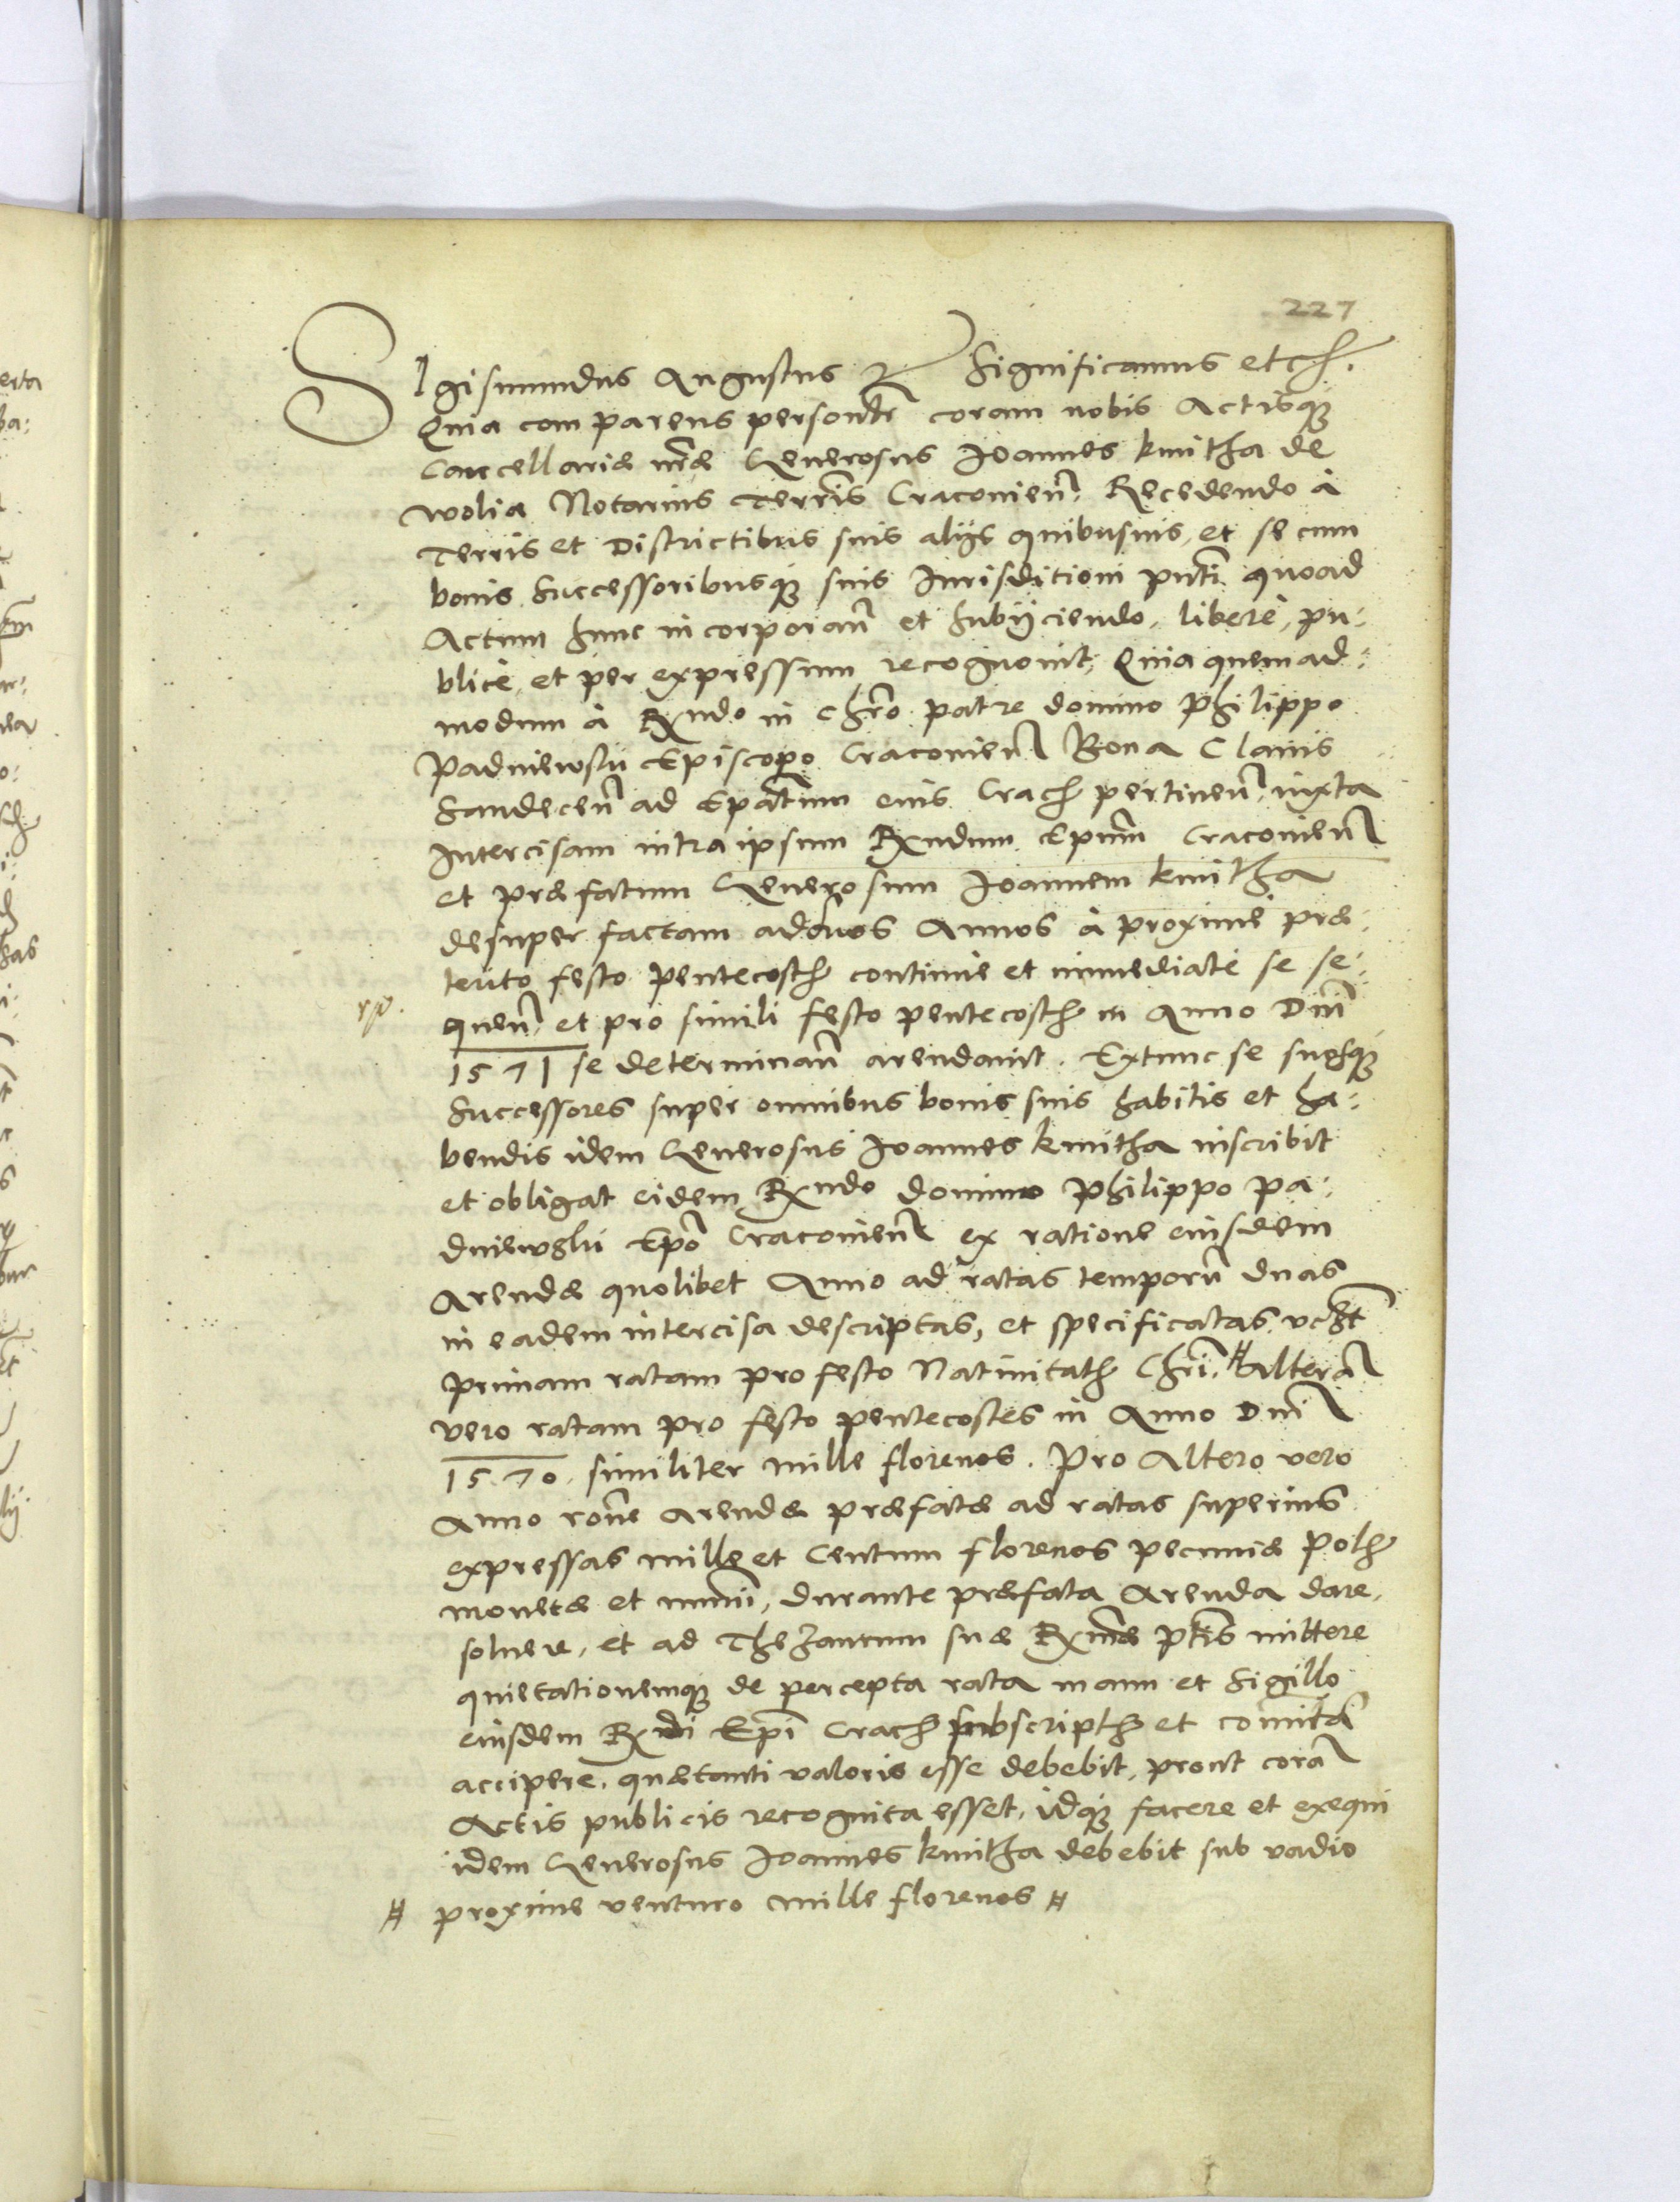 227
SIgismundus Augustus R Significamus etc.
Quia comparens personlr coram nobis Actisq;
Cancellariæ nræ Generosus Ioannes kmitha de
wolia Notarius Terris Craconien. Recedendo à
Terris et Districtibus suis alijs quibusuis, et se cum
bonis Successoribusq; suis Jurisditioni pnti quoad
Actum hunc incorporan et subijciendo, libere, pu:
blicè, et per expressum recognouit, Quia quemad:
modum à Rxndo in Chro patre domino Philippo
Padniewski Episcopo Craconien Bona Clauis
Sandecen ad Epatum eius Crac pertinen, iuxta
Intercisam intra ipsum Rxndum Epum Craconien
et præfatum Generosum Ioannem kmitha
desuper factam ad duos Annos à proximè præ:
terito festo pentecost continuè et immediatè se se:
quen, et pro simili festo pentecost in Anno Dni
1571 se determinan arendauit. Extunc se suosq;
Successores super omnibus bonis suis habitis et ha:
bendis idem Generosus Ioannes kmitha inscribit
et obligat eidem Rxndo domino Philippo Pa:
dniewski Epo Craconien ex ratione eiusdem
Arendæ quolibet Anno ad ratas temporu duas
in eadem intercisa descriptas, et specificatas, vclt
primam ratam pro festo Natiuitat Chri. # Altera
vero ratam pro festo pentecostes in Anno Dni
1570. similiter mille florenos. Pro Altero vero
Anno rone Arendæ præfatæ ad ratas superius
expressas mille et Centum florenos pecuniæ Pol
monetæ et numi, durante præfata Arenda dare,
soluere, et ad Thezaurum suæ Rxmæ ptis mittere
quietationemq; de percepta rata manu et Sigillo
eiusdem Rxndi Epi Crac subscript et comita
accipere, quæ tanti valoris esse debebit, prout cora
Actis publicis recognita esset, idq; facere et exequi
idem Generosus Ioannes kmitha debebit sub vadio
# proxime venturo mille florenos #